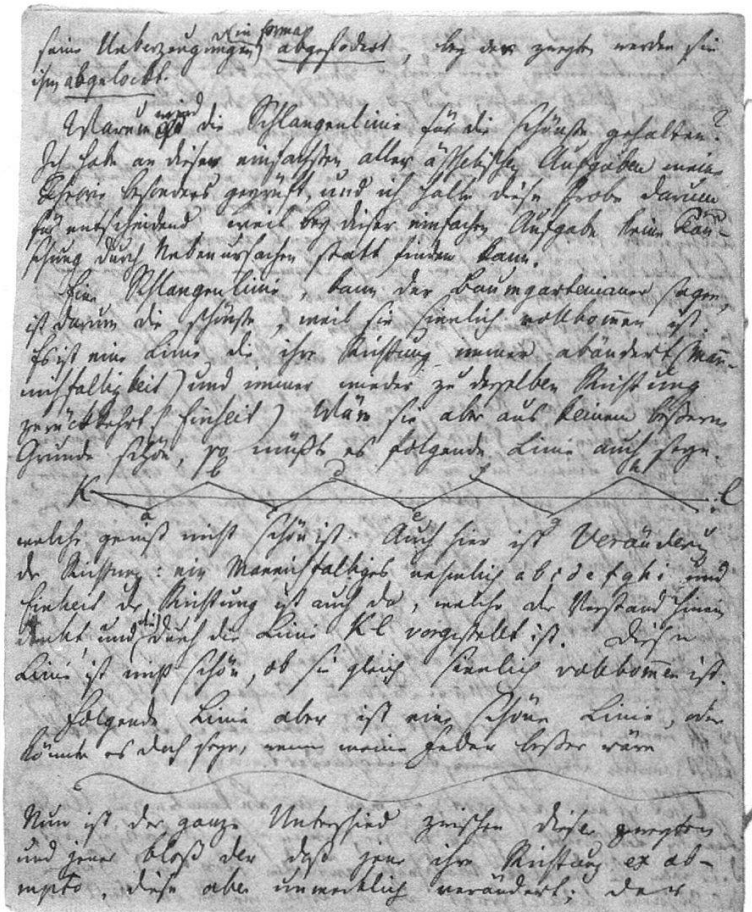 (in forma)
seine Ueberzeugungen abgefodert, bey der zweyten werden sie
ihm abgelockt.
Warum wird die Schlangenlinie für die schönste gehalten?
Ich habe an dieser einfachsten aller ästhetischen Aufgaben meine
Theorie besonders geprüft, und ich halte diese Probe darum
für entscheidend, weil bey dieser einfachen Aufgabe keine Täu-
schung durch Nebenursachen statt finden kann.
Eine Schlangenlinie, kann der Baumgartenianer sagen,
ist darum die schönste, weil sie sinnlich vollkommen ist.
Es ist eine Linie, die ihre Richtung immer abändert (Man-
nichfaltigkeit) und immer wieder zu derselben Richtung
zurückkehrt (Einheit) Wäre sie aber aus keinem beßeren
Grunde schön, so müßte es folgende Linie auch seyn.
K a b c d e f g h i l
welche gewiß nicht schön ist. Auch hier ist Veränderung
der Richtung: ein Mannichfaltiges nehmlich a b c d e f g h i und
Einheit der Richtung ist auch da, welche der Verstand hinein
denkt und die durch die Linie K l vorgestellt ist. Diese
Linie ist nicht schön, ob sie gleich sinnlich vollkommen ist.
Folgende Linie aber ist eine schöne Linie, oder
könnte es doch seyn, wenn meine Feder beßer wäre
Nun ist der ganze Unterschied zwischen dieser zweyten
und jener bloß der, daß jene ihre Richtung ex ab-
rupto, diese aber unmerklich verändert; der